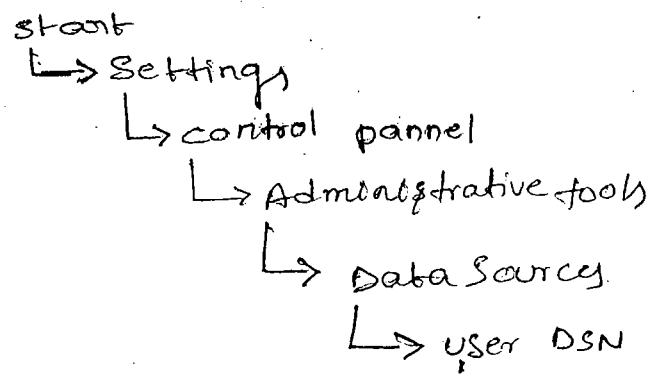 start
Settings
control pannel
Administrative tools
Data Sources
User DSN